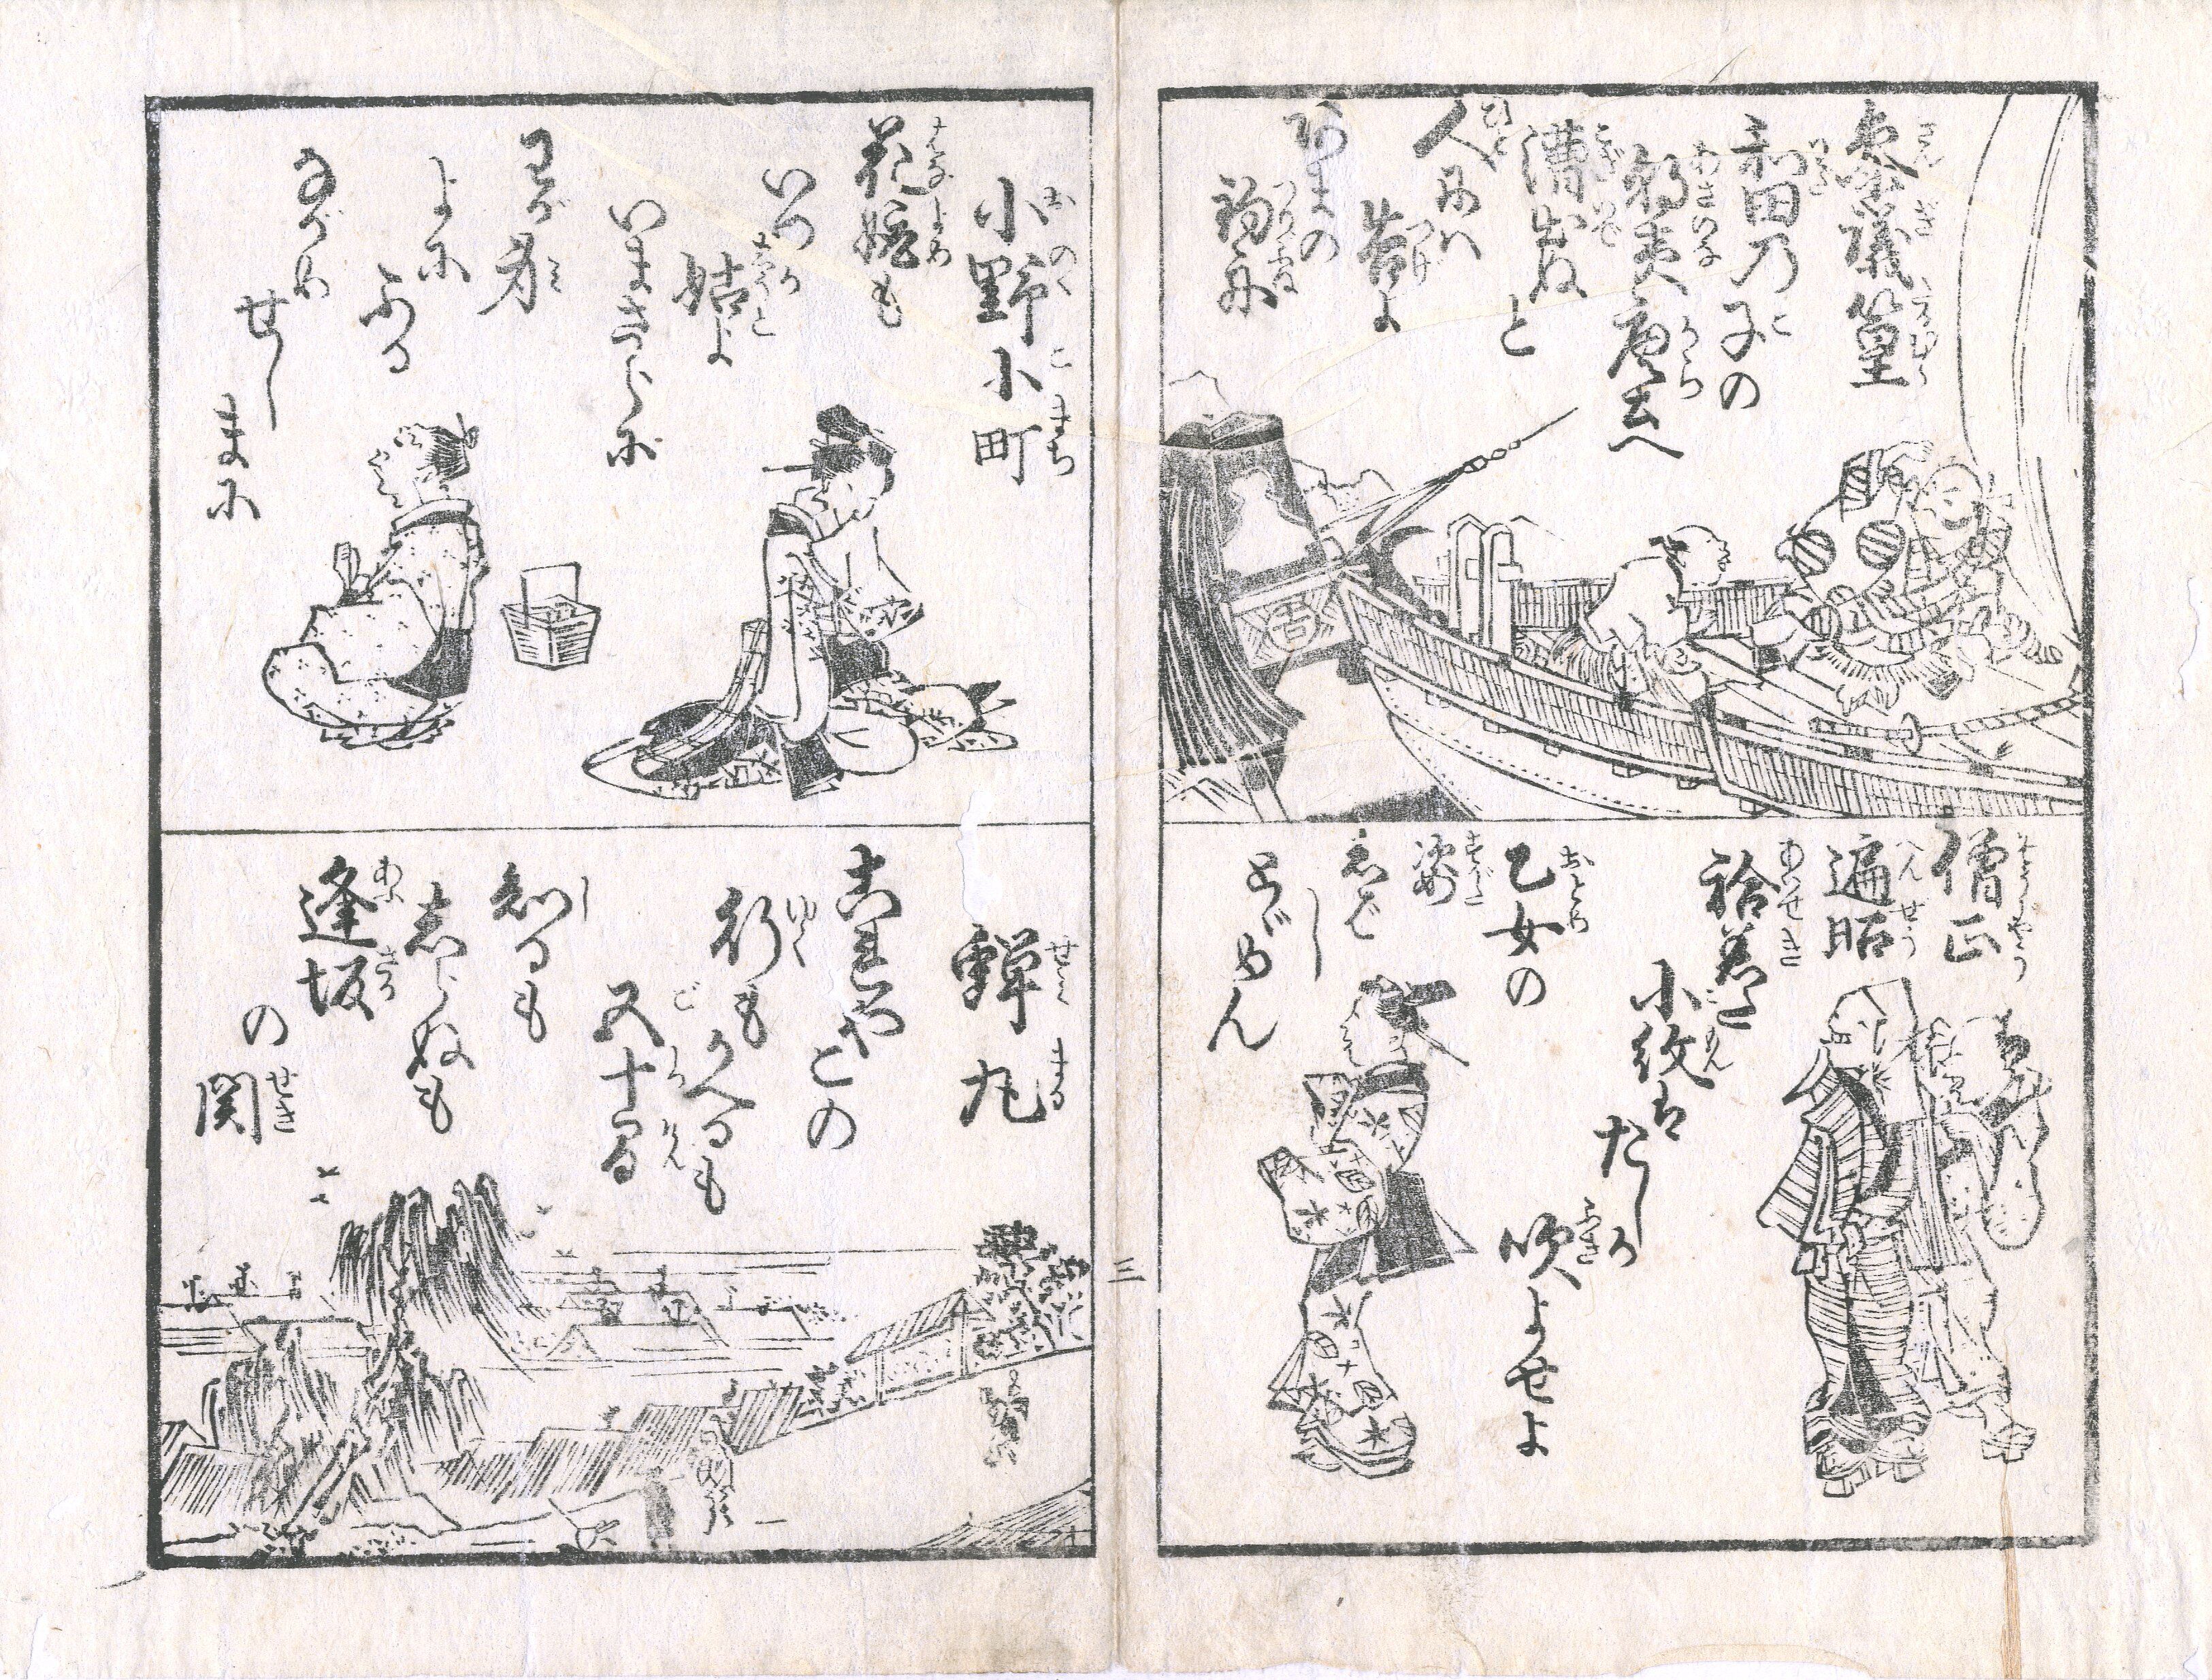 参議篁
和田乃子の
朝夷唐土へ
漕出ぬと
人には
告よ
あまの
釣舟
僧正
遍昭
袷着て
小紋は
たしか
吹よせよ
乙女の
姿
しばし
とゞめん
小野小町
花嫁も
いつか
姑と
いままさしに
わが身
よに
ふる
ながめ
せし
まに
蝉丸
これやこの
行もかへるも
五十間
知るも
しらぬも
逢坂
の関
三